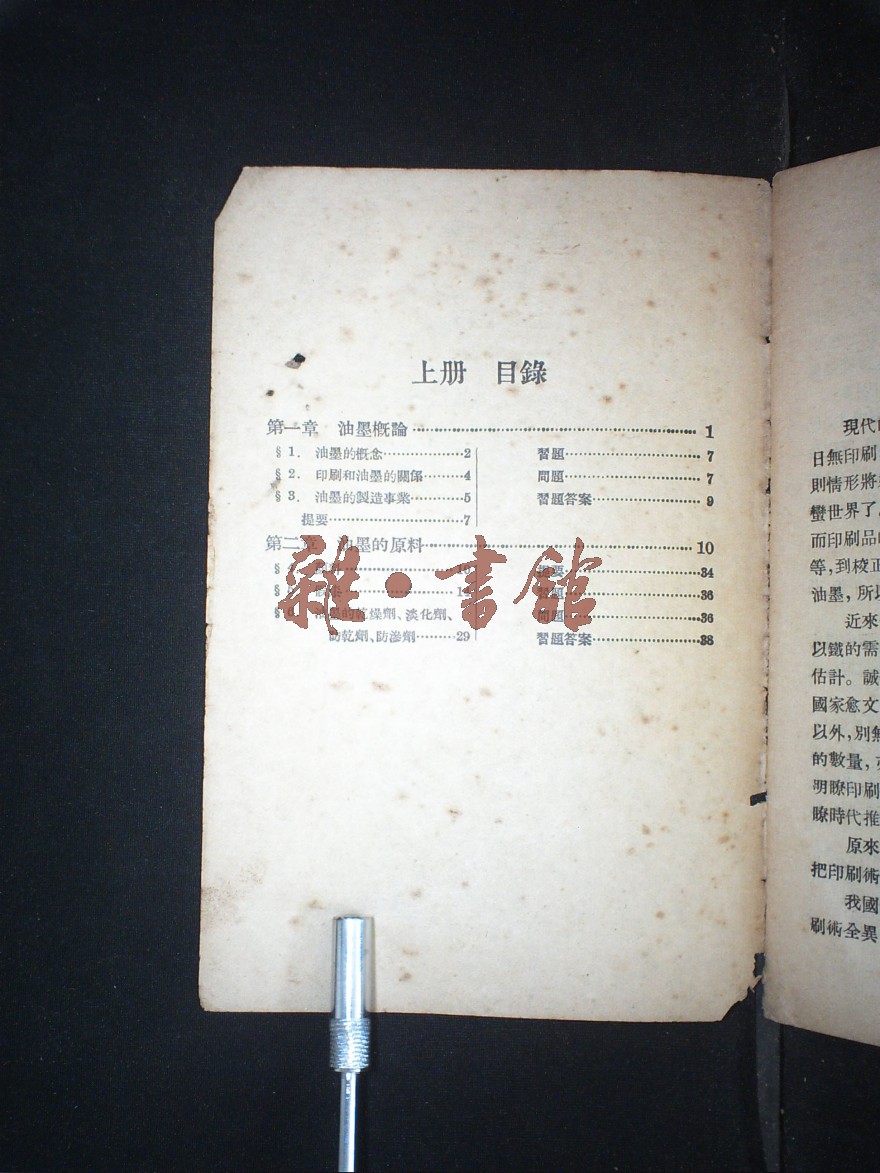 上册　目錄
第一章　油墨概論 1
§1. 油墨的概念 2
§2. 印刷和油墨的關係 4
§3. 油墨的製造事業 5
提要 7
習題 7
問題 7
習題答案 9
第二章　油墨的原料 10
§
§
§6. 油墨的乾燥劑、淡化劑、
防乾劑、防滲劑 29
提要 34
習題 36
問題 36
習題答案 38
雜·書館
現代
日無印刷
則情形將
蠻世界了
而印刷品
等，到校正
油墨，所以
近來
以鐵的需
估計。誠
國家愈文
以外，別無
的數量，
明瞭印刷
瞭時代推
原來
把印刷術
我國
刷術全異